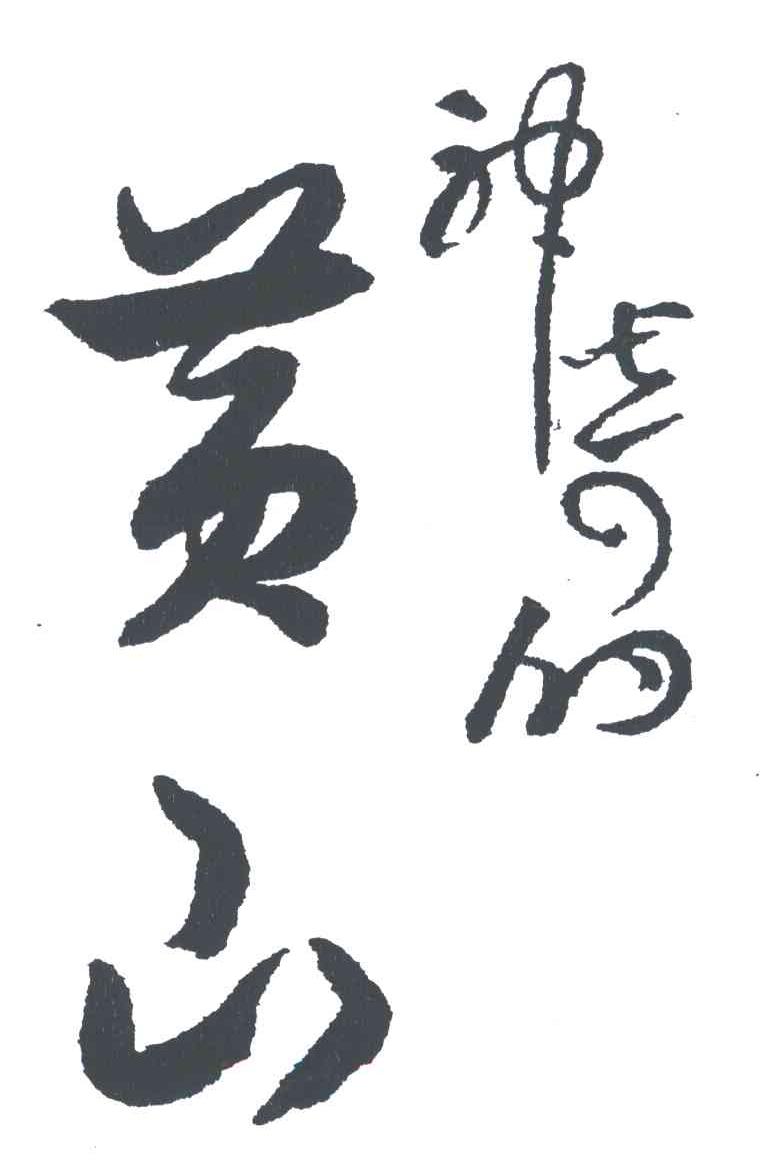 神奇的
黄山